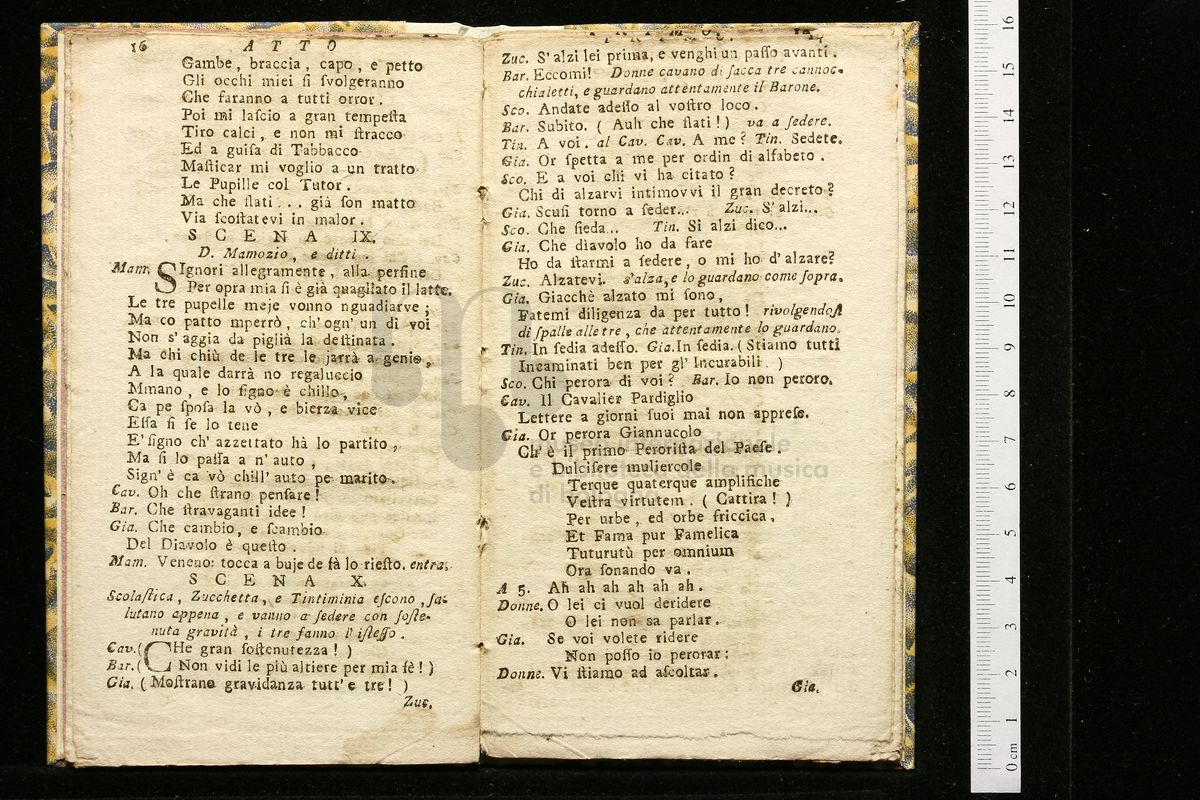 16 ATTO
Gambe, braccia, capo, e petto
Gli occhi miei ſi ſvolgeranno
Che faranno a tutti orror.
Poi mi laſcio a gran tempeſta
Tiro calci, e non mi ſtracco
Ed a guiſa di Tabbacco
Maſticar mi voglio a un tratto
Le Pupille col Tutor.
Ma che ſlati... già ſon matto
Via ſcoſtatevi in malor.
SCENA IX.
D. Mamozio, e ditti.
Mam. SIgnori allegramente, alla perfine
Per opra mia ſi è già quagliato il latte.
Le tre pupelle meje vonno nguadiarve;
Ma co patto mperrò, ch'ogn' un di voi
Non s'aggia da piglià la deſtinata.
Ma chi chiù de le tre le jarrà a genio,
A la quale darrà no regaluccio
Mmano, e lo ſigno è chillo,
Ca pe ſpoſa la vò, e bierza vice
Eſſa ſi ſe lo tene
E' ſigno ch' azzettato hà lo partito,
Ma ſi lo paſſa a n' auto,
Sign' è ca vò chill' auto pe marito.
Cav. Oh che ſtrano penſare!
Bar. Che ſtravaganti idee!
Gia. Che cambio, e ſcambio
Del Diavolo è queſto.
Mam. Veneno: tocca a buje de fà lo rieſto. entra.
SCENA X.
Scolaſtica, Zucchetta, e Tintiminia eſcono, ſa-
lutano appena, e vanno a ſedere con ſoſte-
nuta gravità, i tre fanno l' iſteſſo.
Cav. ( CHe gran ſoſtenutezza! )
Bar. ( Non vidi le più altiere per mia fè! )
Gia. ( Moſtrano gravidanza tutt' e tre! )
Zuc.
Zuc. S'alzi lei prima, e venghi un paſſo avanti.
Bar. Eccomi! Donne cavano di ſacca tre cannoc-
chialetti, e guardano attentamente il Barone.
Sco. Andate adeſſo al voſtro loco.
Bar. Subito. ( Auh che ſlati! ) va a ſedere.
Tin. A voi. al Cav. Cav. A me? Tin. Sedete.
Gia. Or ſpetta a me per ordin di alfabeto.
Sco. E a voi chi vi ha citato?
Chi di alzarvi intimovvi il gran decreto?
Gia. Scuſi torno a ſeder... Zuc. S'alzi...
Sco. Che ſieda... Tin. Si alzi dico...
Gia. Che diavolo ho da fare
Ho da ſtarmi a ſedere, o mi ho d'alzare?
Zuc. Alzatevi. s'alza, e lo guardano come ſopra.
Gia. Giacchè alzato mi ſono,
Fatemi diligenza da per tutto! rivolgendoſi
di ſpalle alle tre, che attentamente lo guardano.
Tin. In ſedia adeſſo. Gia. In ſedia. ( Stiamo tutti
Incaminati ben per gl' Incurabili. )
Sco. Chi perora di voi? Bar. Io non peroro.
Cav. Il Cavalier Pardiglio
Lettere a giorni ſuoi mai non appreſe.
Gia. Or perora Giannacolo
Ch' è il primo Peroriſta del Paeſe.
Dulciſere muliercole
Terque quaterque amplifiche
Veſtra virtutem. ( Cattira! )
Per urbe, ed orbe friccica,
Et Fama pur Famelica
Tuturutù per omnium
Ora ſonando va.
A 5. Ah ah ah ah ah ah.
Donne. O lei ci vuol deridere
O lei non sa parlar.
Gia. Se voi volete ridere
Non poſſo io perorar:
Donne. Vi ſtiamo ad aſcoltar.
Gia.